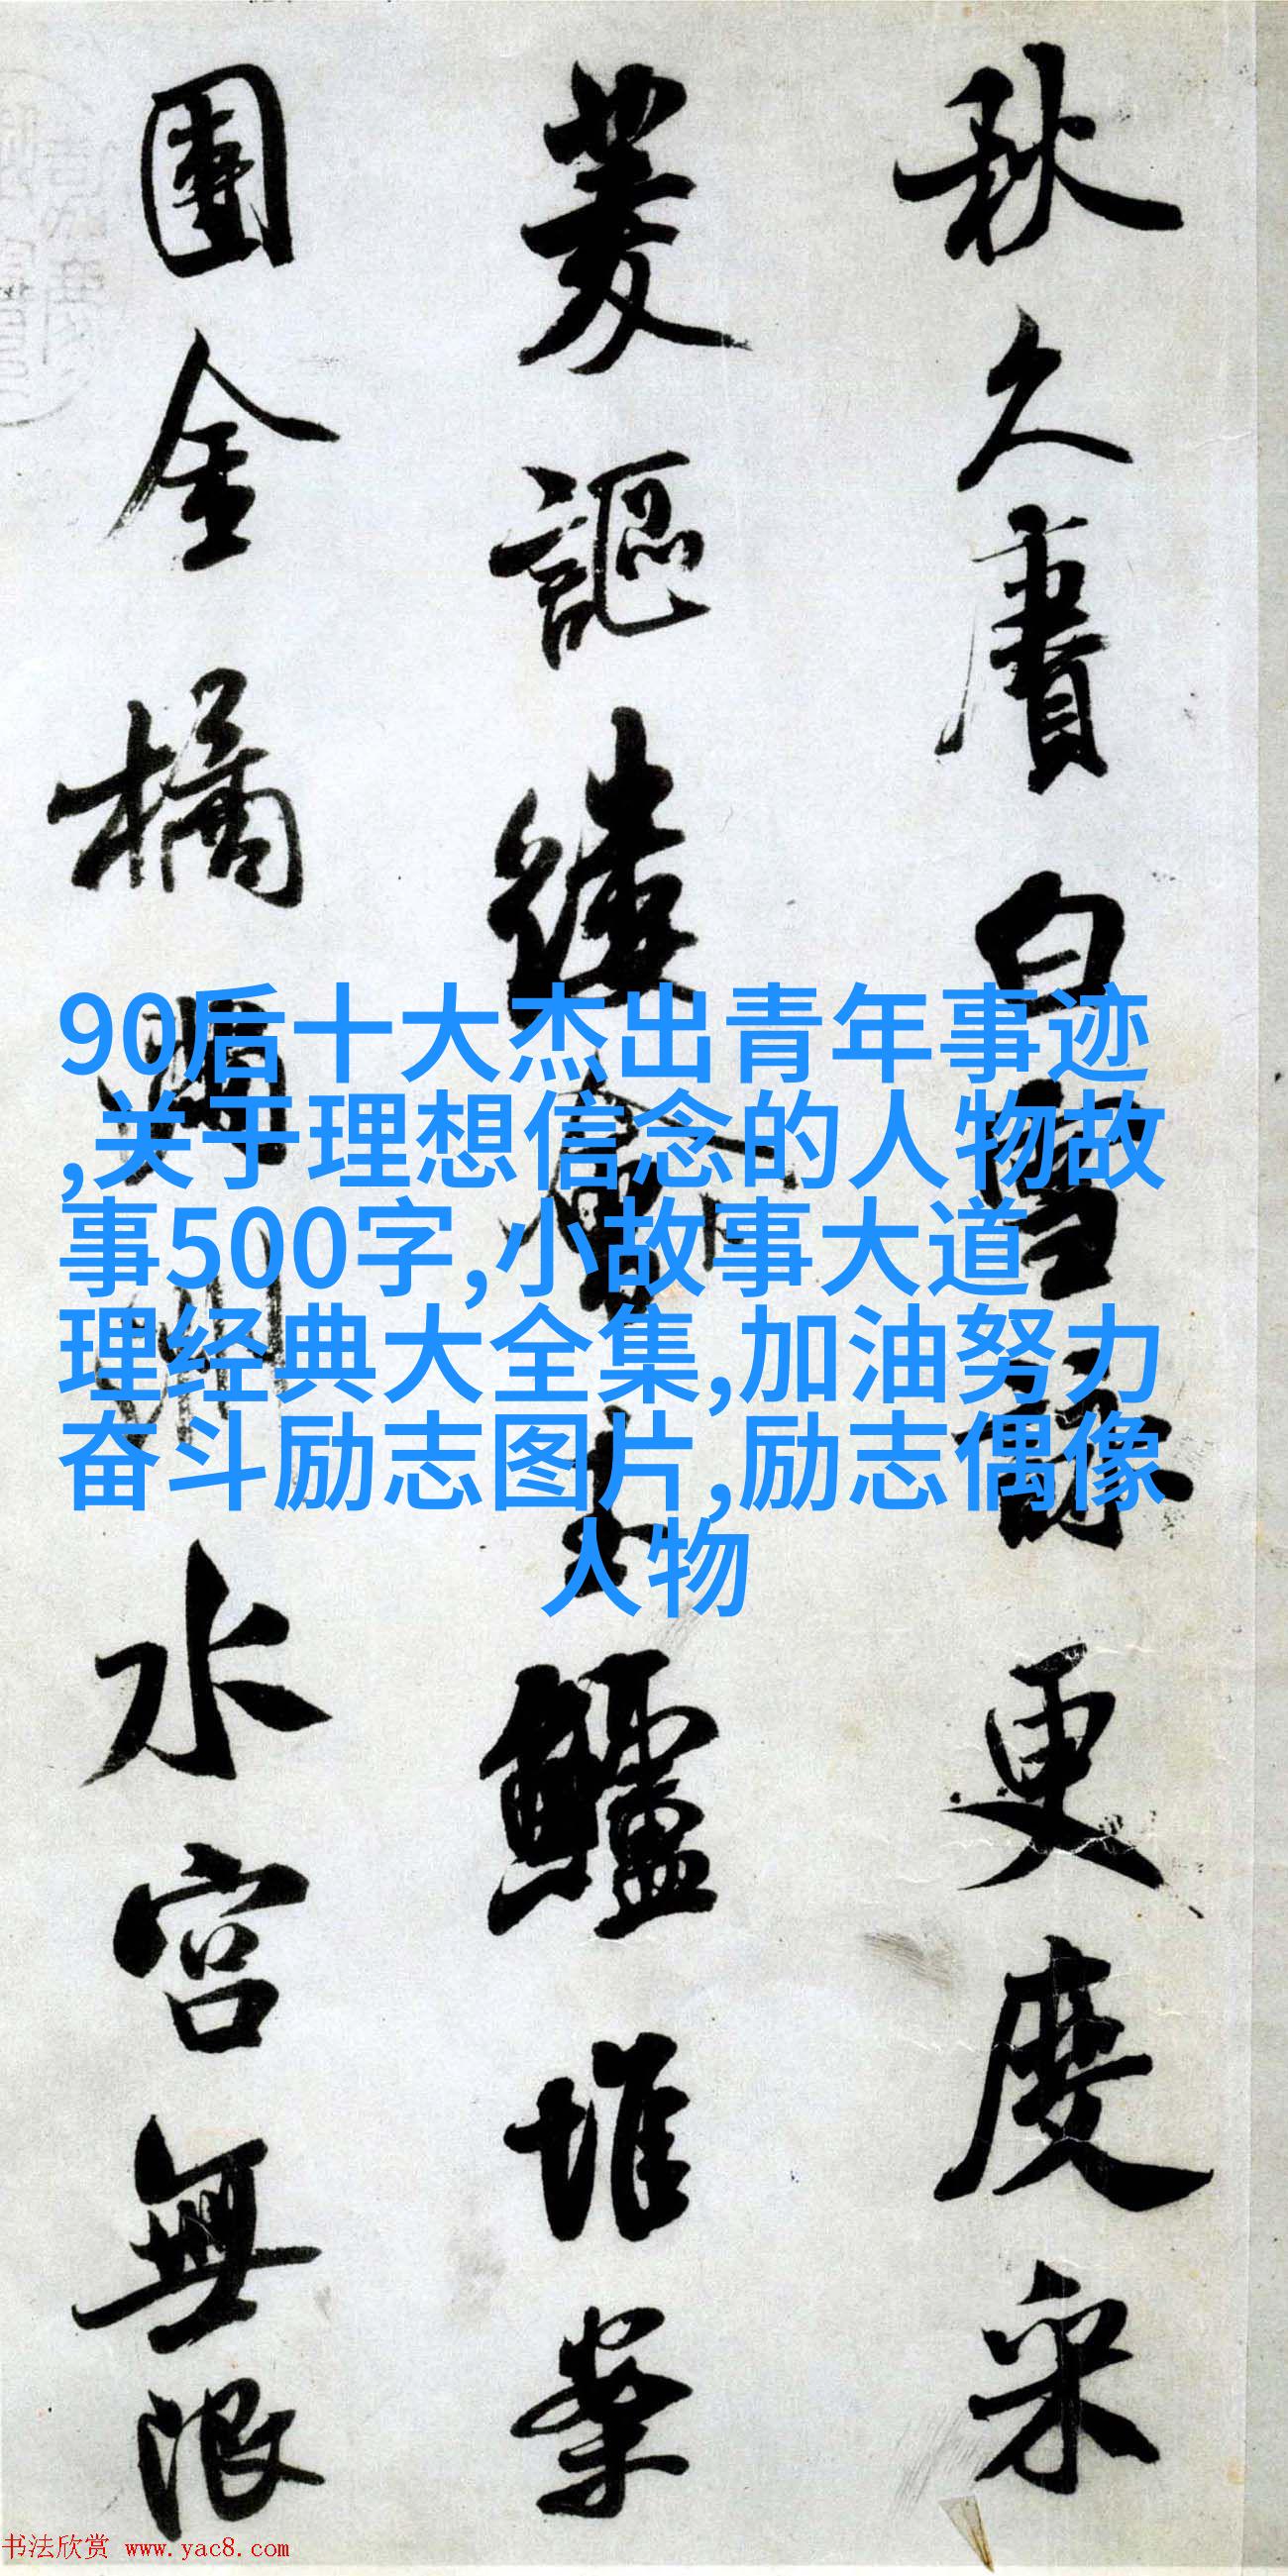 秋久賡白雪詠更度采
菱謳縷會玉鱸堆案
團金橘滿洲水宮無限
90后十大杰出青年事迹
,关于理想信念的人物故
事500字,小故事大道
理经典大全集,加油努力
奋斗励志图片,励志偶像
人物
书法欣赏 www.yac8.com